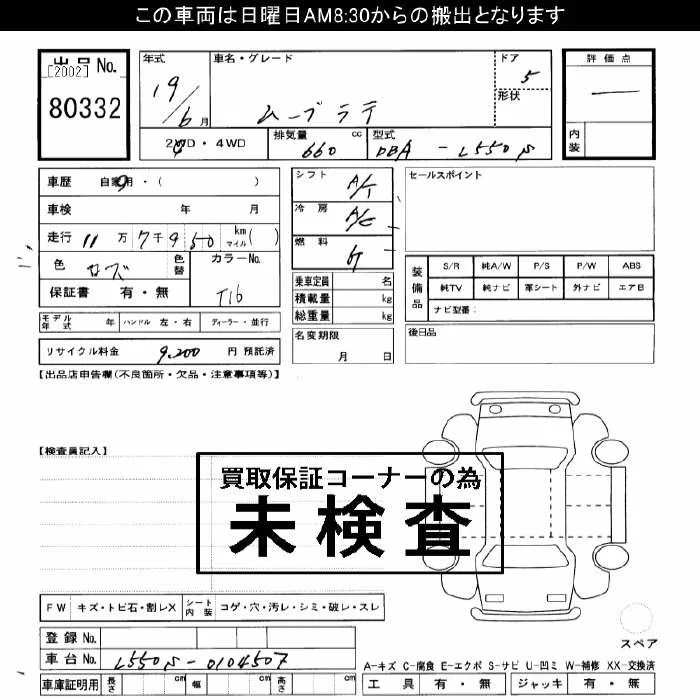 この車両は日曜日AM8:30からの搬出となります
出品 No.
[2002]
80332
年式 19/6 月
車名・グレード ムーブラテ
ドア 5
形状
評価点 —
内装
2WD・4WD
排気量 660 cc
型式 DBA - L550S
車歴 自家用・( )
車検 年 月
走行 11 万 7 千 9 50 km マイル ( )
色
色替
カラーNo. T16
保証書 有・無
モデル年式 年 ハンドル 左・右 ディーラー・並行
リサイクル料金 9,200 円 預託済
シフト A/T
冷房 A/C
燃料
乗車定員 名
積載量 kg
総重量 kg
名変期限 月 日
セールスポイント
装備品
S/R 純A/W P/S P/W ABS
純TV 純ナビ 革シート 外ナビ エアB
ナビ型番:
後日品
【出品店申告欄(不良箇所・欠品・注意事項等)】
【検査員記入】
買取保証コーナーの為
未検査
FW キズ・トビ石・割レX シート内装 コゲ・穴・汚レ・シミ・破レ・スレ
登録 No.
車台 No. L550S-0104507
車庫証明用 長さ cm 幅 cm 高さ cm
スペア
A-キズ C-腐食 E-エクボ S-サビ U-凹ミ W-補修 XX-交換済
工具 有・無 ジャッキ 有・無